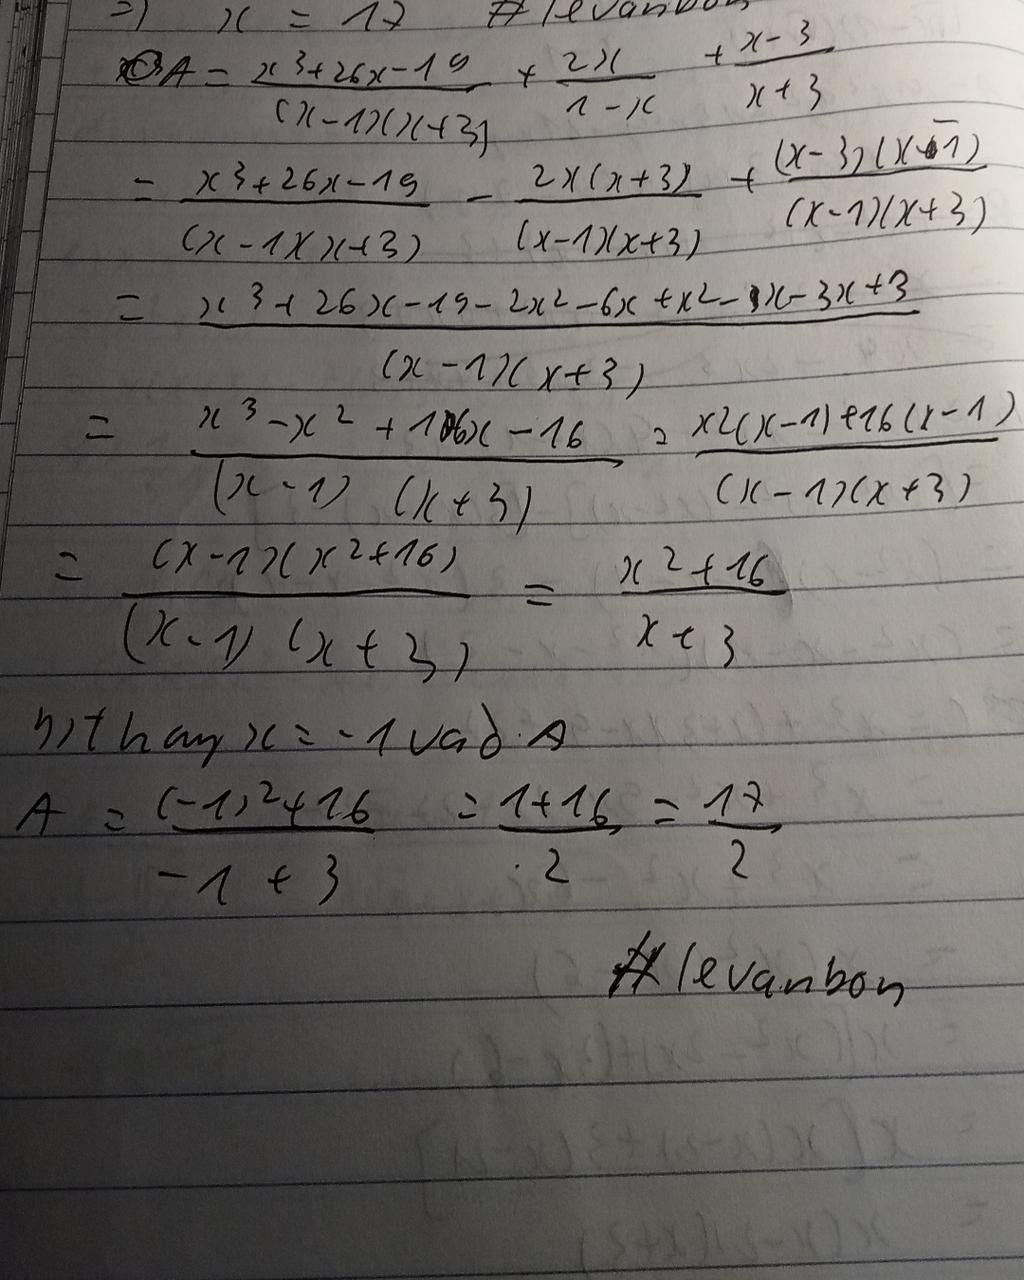 =) x = 17 #levanbon
A = (x³+26x-19)/((x-1)(x+3)) + 2x/(1-x) + (x-3)/(x+3)
= (x³+26x-19)/((x-1)(x+3)) - 2x(x+3)/((x-1)(x+3)) + (x-3)(x-1)/((x-1)(x+3))
= (x³+26x-19-2x²-6x+x²-x-3x+3)/((x-1)(x+3))
= (x³-x²+16x-16)/((x-1)(x+3)) = (x2(x-1)+16(x-1))/((x-1)(x+3))
= (x-1)(x²+16)/((x-1)(x+3)) = (x²+16)/(x+3)
b) thay x = -1 vaò A
A = ((-1)²+16)/(-1+3) = (1+16)/2 = 17/2
#levanbon